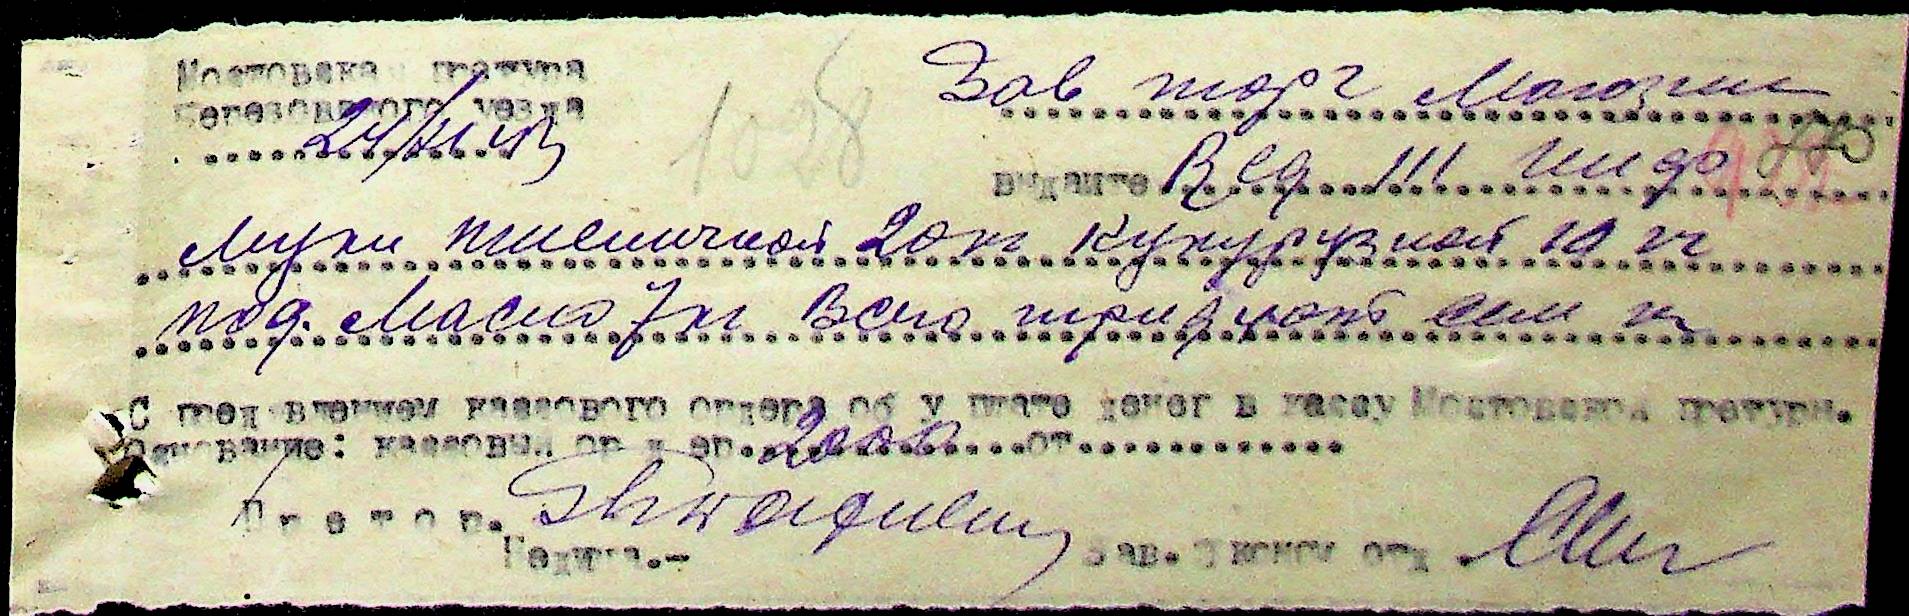 Мостовская претура
Березовского уезда
24/XI 43
1028
Зав торг Магозин
220
выдайте Вед III
муки пшеничной 20 кг кукурузной 10 кг
под. Масло 7 кг Всего тридцать сем кг
С пред влением кассового ордера об у плате денег в кассу Мостовской претуры.
Основание: кассовый ор д ер. 2000 от
Претор.
Зав. Эконом отд.